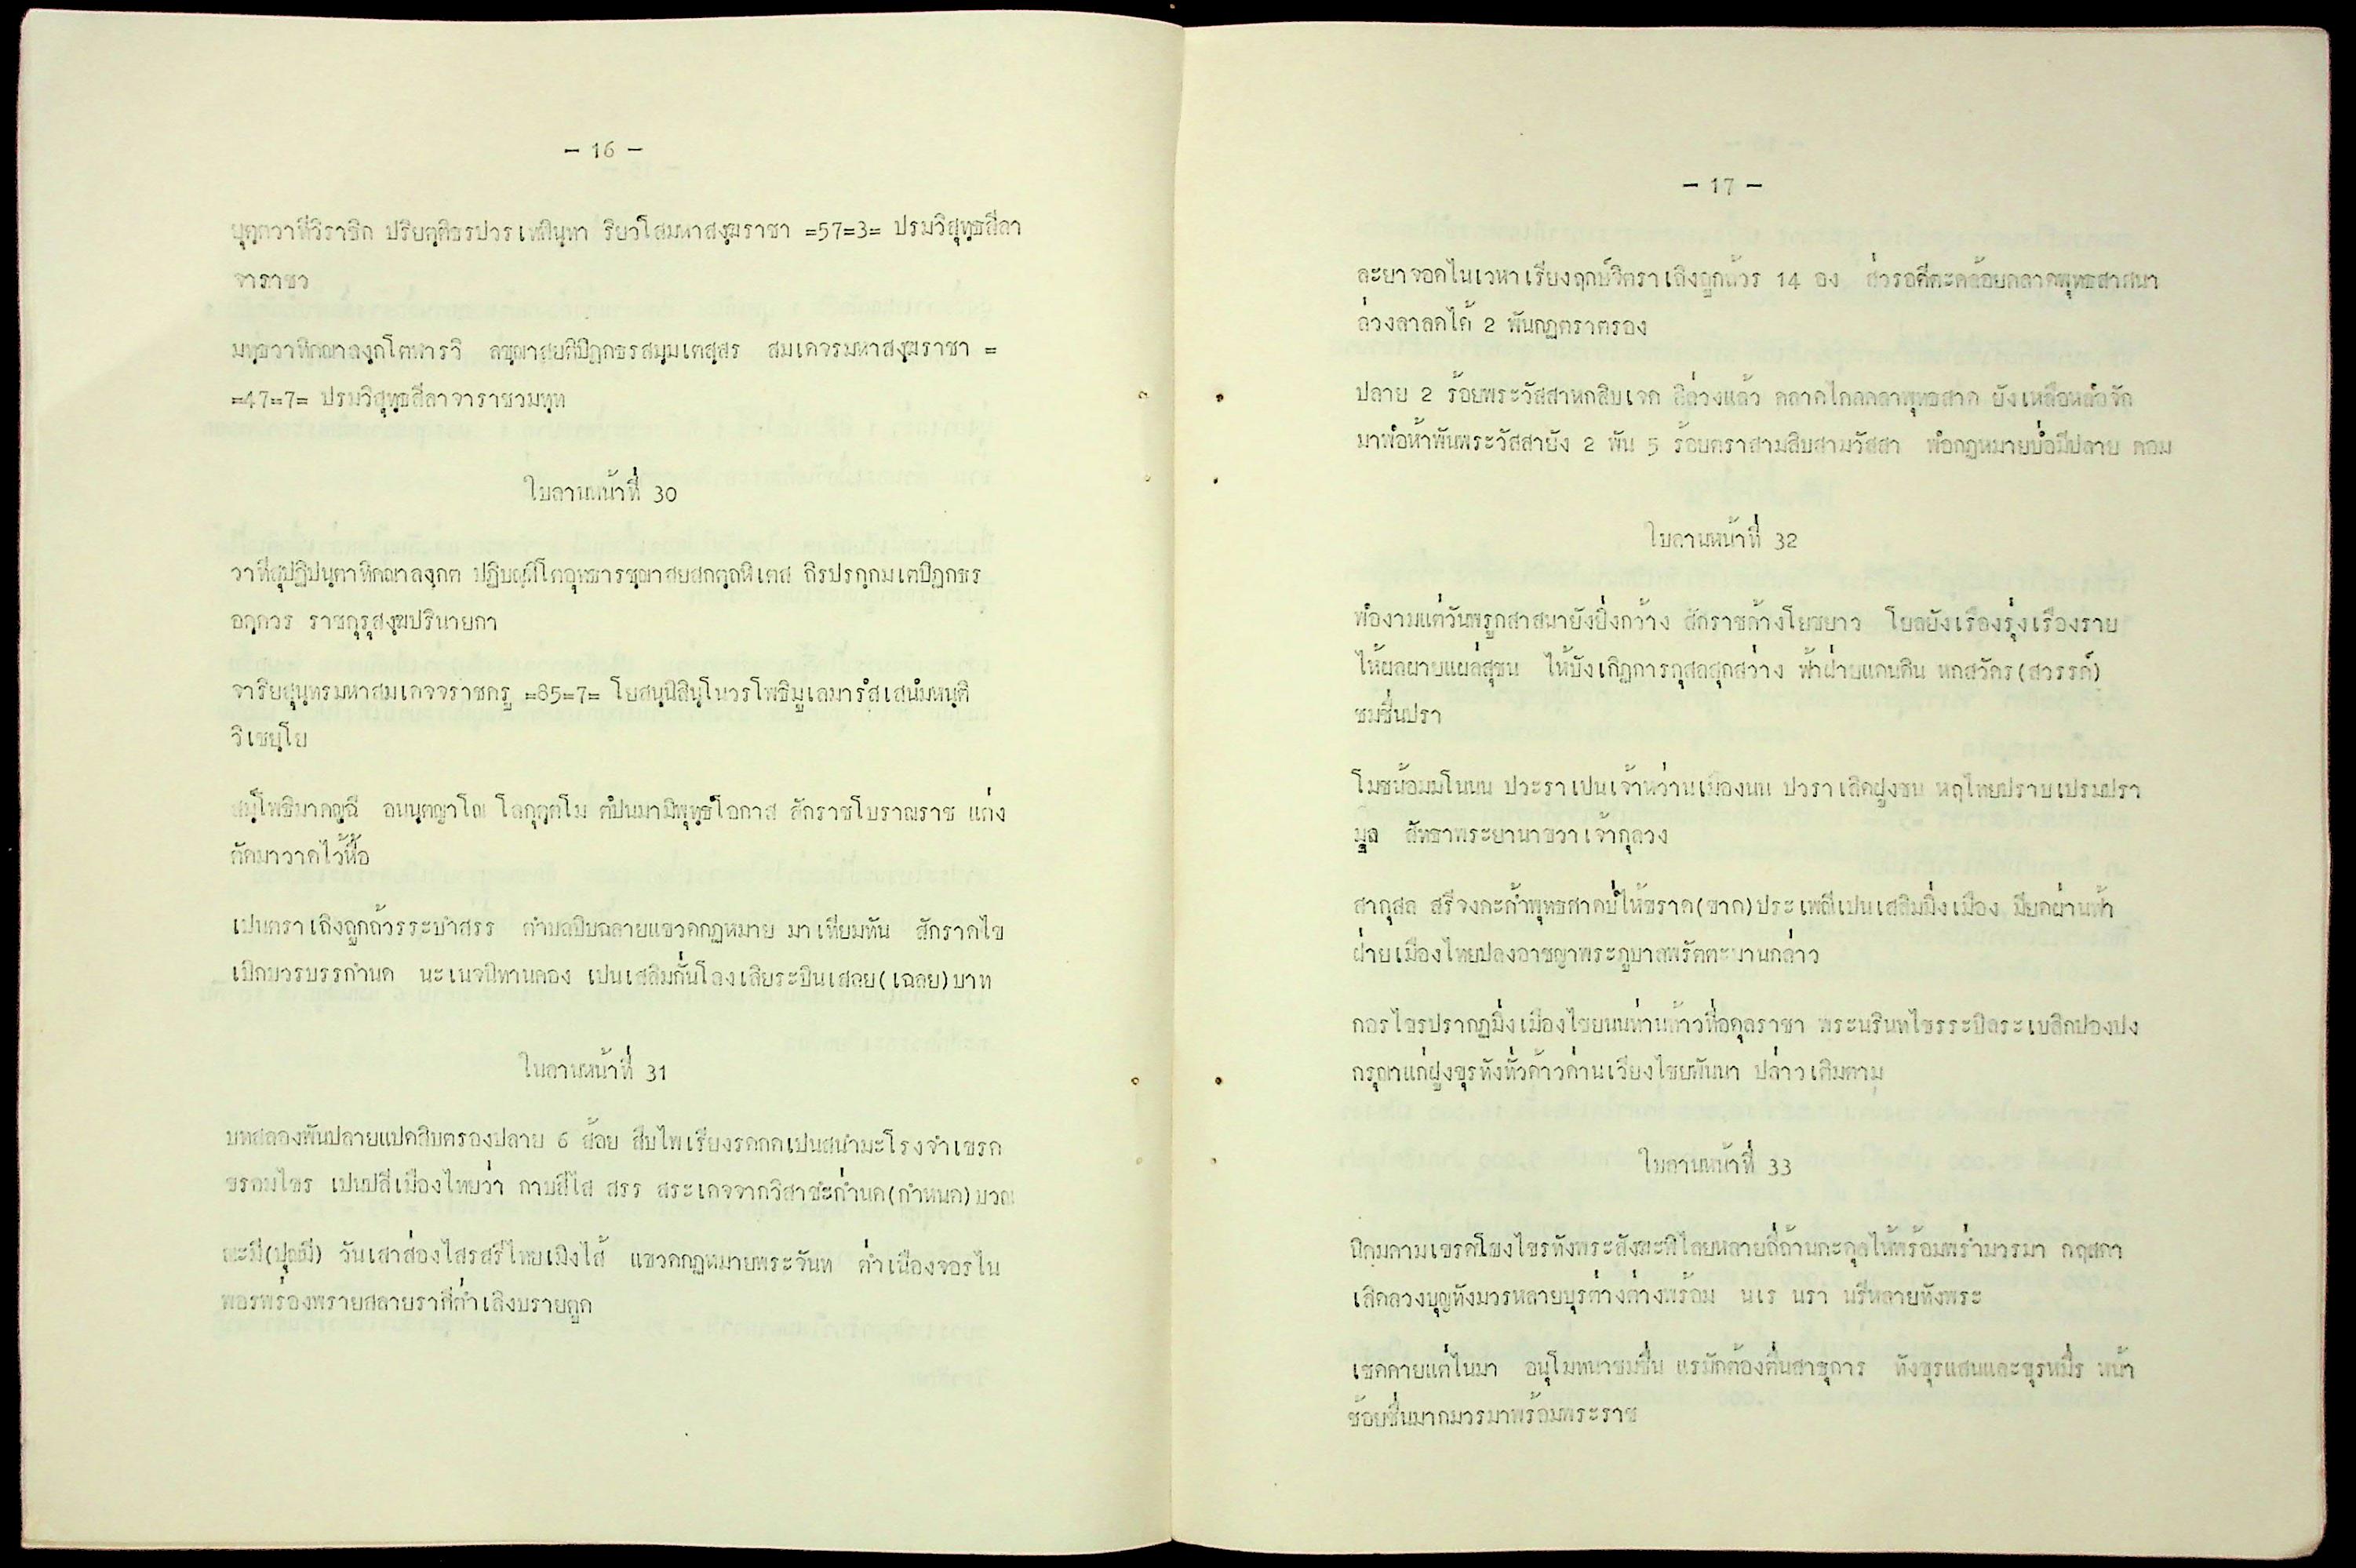 - 16 -
ยุตฺตวาทีวิราชิต ปริยตฺติธรปวรเทพินฺทา ริยวํโสมหาสงฺฆราชา =57=3= ปรมวิสุทฺธสีลา
จาราชว
มทฺธวาทิคณาลงฺกโตหารวิ ลชฺฌาสยติปิฏกธรสมฺมเตสฺสร สมเดจรมหาสงฺฆราชา =
=47=7= ปรมวิสุทฺธสีลาจาราชวมทฺท
ใบลานหน้าที่ 30
วาทีสุปฏิปนฺตาทิคณาลงฺกต ปฏิบตฺติโตอุทธารชฺฌาสยสกตฺถนิเตส ถิรปรกฺกมเตปิฏกธร
อคฺควร ราชกุรุสงฺฆปรินายกา
จาริยสุนฺทรมหาสมเดจจราชครู =85=7= โยสนฺนิสินฺโนวรโพธิมูเลมารํสเสนํมหนฺติ
วิเชยฺโย
สมฺโพธิมาคญฉี อนนฺตญาโณ โลกุตฺตโม ตํปนมามิพุทฺธํโอกาส สักราชโบราณราช แต่ง
ตัดมาวาดไว้หื้อ
เปนตราเถิงถูกถ้วรระบำสรร ตำบลปิบฉลายแขวดกฏหมาย มาเทียมทัน สักราดไข
เบิกบวรบรรกำนด นะเนจนิทานตอง เปนเสลิมกั่นโลงเสิยระบินเสลย(เฉลย)บาท
ใบลานหน้าที่ 31
บทสลองพันปลายแปดสิบตรองปลาย 6 ส้อย สืบไพเรียงรดกดเปนสนำมะโรงจำเขรด
ขรอมไขร เปนปสีเมืองไทยว่า กาบสีไส สรร สระเดจจากวิสาขะกำนด(กำหนด)บวณ
ณะมี(ปุณมี) วันเสาส่องไสรสรีไทยเมิงไส้ แขวดกฏหมายพระจันท ค่ำเนืองจอรใน
พอรพร่องพรายสลายราศีค่ำเลิงบรายถูก
- 17 -
ละยาจอดไนเวหาเรียงฤกษ์จิตราเถิงถูกถ้วร 14 อง ส่วรอดีตะคล้อยคลาดพุทธสาสนา
ล่วงลาลดได้ 2 พันกฏตราตรอง
ปลาย 2 ร้อยพระวัสสาหกสิบเจด สีล่วงแล้ว คลาดไคลคลาพุทธสาด ยังเหลือหลอจัก
มาพ่อห้าพันพระวัสสายัง 2 พัน 5 ร้อยตราสามสิบสามวัสสา พ่อกฏหมายบ่อมีปลาย ตอม
ใบลานหน้าที่ 32
พ่องามแต่วันพรูกสาสนายังยิ่งกว้าง สักราชค้างโยชยาว โยลยังเรืองรุ่งเรืองราย
ไห้ผลผายแผล่สุขน ไห้บังเกิฏการกุสลสุกสว่าง ฟ้าฝ่ายแดนดิน หกสวัคร(สวรรค์)
ชมชื่นปรา
โมชน้อมมโนนน ปวะราเปนเจ้าหว่านเมืองนน ปวราเลิดฝูงชน หฤไทยปราบเปรมปรา
มูล สัทธาพระยานาขวาเจ้ากุลวง
สากุสล สรีจงคะก้ำพุทธศาดบ่ไห้ขราด(ขาด)ประเพณีเปนเสลิมมิ่งเมือง มียดผ่านฟ้า
ฝ่ายเมืองไทยปลงอาชญาพระภูบาลพรัตตะบานกล่าว
กอรไจรปรากฏมิ่งเมืองไชยนนท่านท้าวที่อตุลราชา พระนรินทไชรระบิลระเบสิกปองปง
กรุณาแก่ฝูงขุรทังทั่วด้าวด่านเวียงไชยพันนา ปล่าวเติมตาม
ใบลานหน้าที่ 33
นิคมคามเขรดโขงไขรทังพระสังฆะพิไลยหลายถี่ถ้านกะตุลไห้พร้อมพร่ำมวรมา กฤสดา
เลิดลวงบุญทังมวรหลายบุรต่างต่างพร้อม นเร นรา นรีหลายทังพระ
เชดดายแต่ไนมา อนุโมทนาชมชื่น แรมักต้องตื่นสาธุการ ทังขุรแสนและขุรหมื่ร หน้า
ช้อยชื่นมากมวรมาพร้อมพระราช